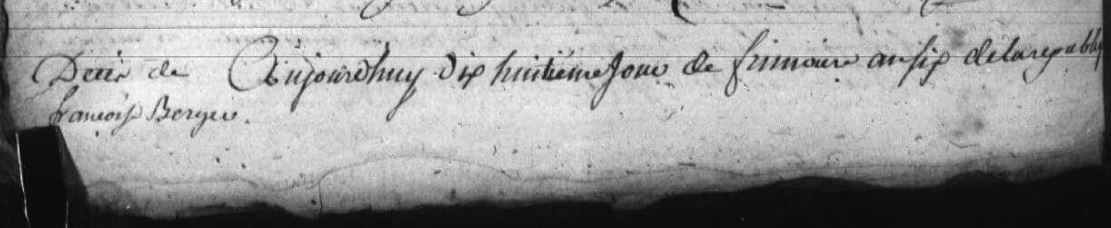 Deces de
françois Berger.
Aujourdhuy dix huitieme Jour de frimaire an six de la republiq